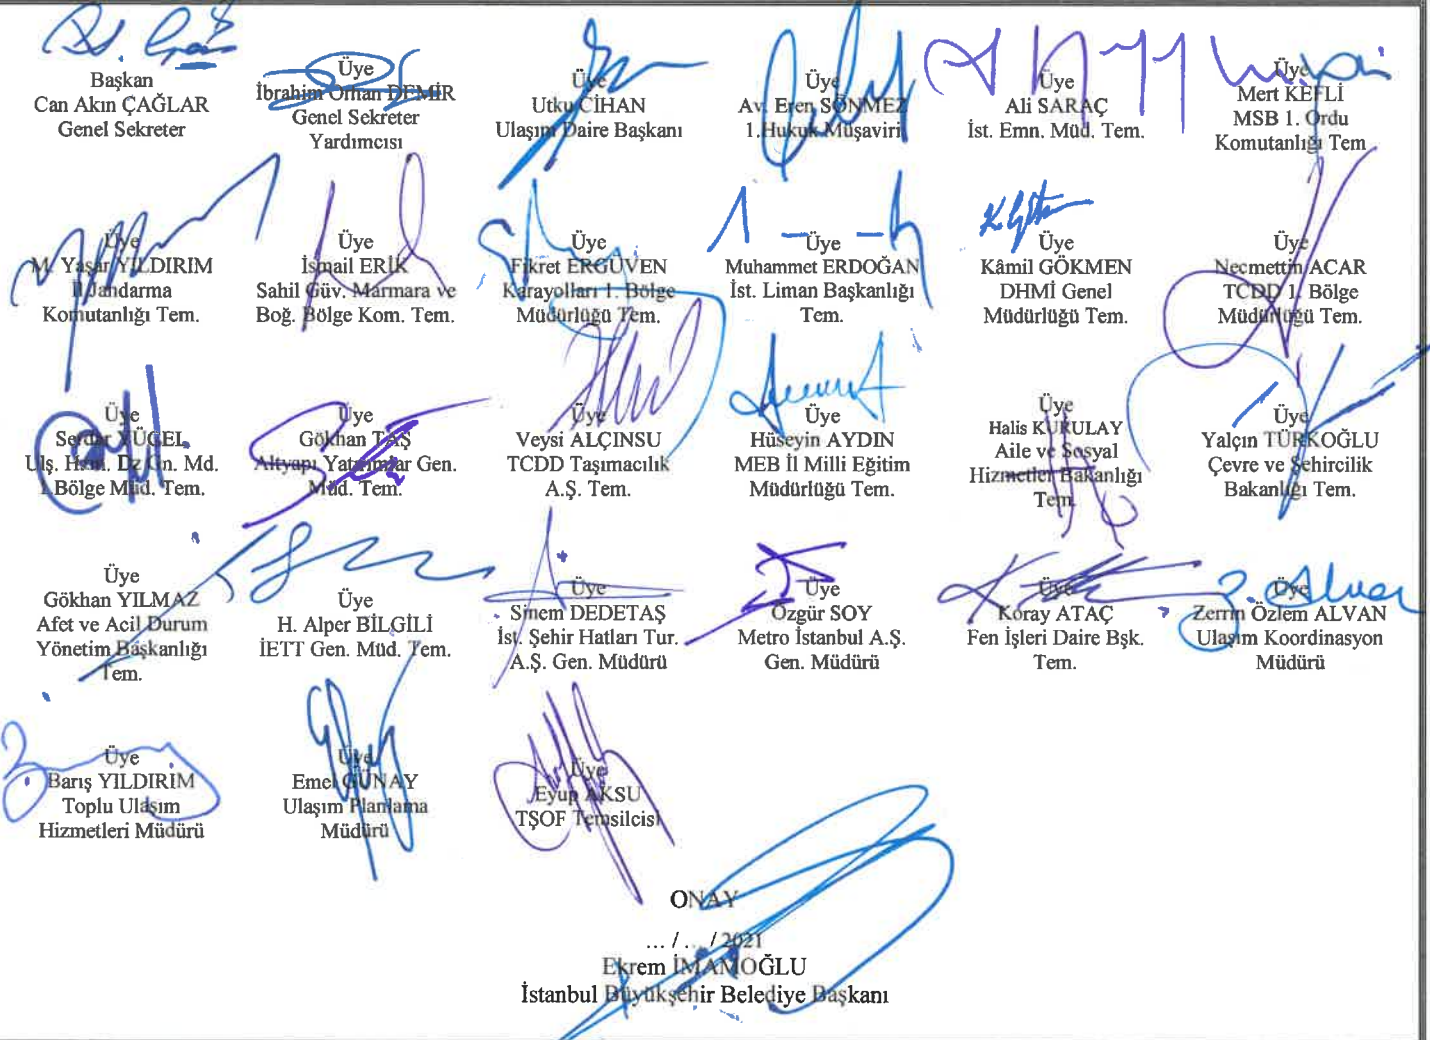 Başkan
Can Akın ÇAĞLAR
Genel Sekreter
Üye
İbrahim Orhan DEMİR
Genel Sekreter
Yardımcısı
Üye
Utku CİHAN
Ulaşım Daire Başkanı
Üye
Av. Eren SÖNMEZ
1.Hukuk Müşaviri
Üye
Ali SARAÇ
İst. Emn. Müd. Tem.
Üye
Mert KEFLİ
MSB 1. Ordu
Komutanlığı Tem
Üye
M. Yaşar YILDIRIM
İl Jandarma
Komutanlığı Tem.
Üye
İsmail ERİK
Sahil Güv. Marmara ve
Boğ. Bölge Kom. Tem.
Üye
Fikret ERGÜVEN
Karayolları 1. Bölge
Müdürlüğü Tem.
Üye
Muhammet ERDOĞAN
İst. Liman Başkanlığı
Tem.
Üye
Kâmil GÖKMEN
DHMİ Genel
Müdürlüğü Tem.
Üye
Necmettin ACAR
TCDD 1. Bölge
Müdürlüğü Tem.
Üye
Serdar YÜGEL
Ulş. Hzm. Dz Gn. Md.
1.Bölge Müd. Tem.
Üye
Gökhan TAŞ
Altyapı Yatırımlar Gen.
Müd. Tem.
Üye
Veysi ALÇINSU
TCDD Taşımacılık
A.Ş. Tem.
Üye
Hüseyin AYDIN
MEB İl Milli Eğitim
Müdürlüğü Tem.
Üye
Halis KURULAY
Aile ve Sosyal
Hizmetler Bakanlığı
Tem.
Üye
Yalçın TÜRKOĞLU
Çevre ve Şehircilik
Bakanlığı Tem.
Üye
Gökhan YILMAZ
Afet ve Acil Durum
Yönetim Başkanlığı
Tem.
Üye
H. Alper BİLGİLİ
İETT Gen. Müd. Tem.
Üye
Sinem DEDETAŞ
İst. Şehir Hatları Tur.
A.Ş. Gen. Müdürü
Üye
Özgür SOY
Metro İstanbul A.Ş.
Gen. Müdürü
Üye
Koray ATAÇ
Fen İşleri Daire Bşk.
Tem.
Üye
Zerrin Özlem ALVAN
Ulaşım Koordinasyon
Müdürü
Üye
Barış YILDIRIM
Toplu Ulaşım
Hizmetleri Müdürü
Üye
Emel GÜNAY
Ulaşım Planlama
Müdürü
Üye
Eyup AKSU
TŞOF Temsilcisi
ONAY
... / ... / 2021
Ekrem İMAMOĞLU
İstanbul Büyükşehir Belediye Başkanı